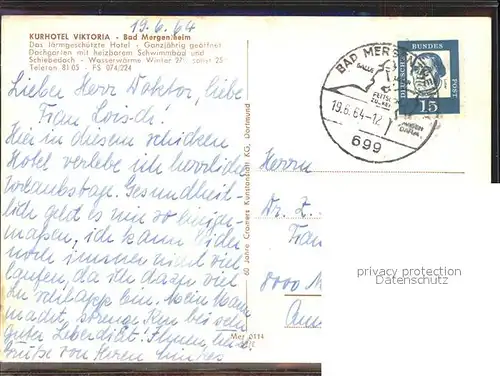 19.6.64
KURHOTEL VIKTORIA - Bad Mergentheim
Das lärmgeschützte Hotel - Ganzjährig geöffnet
Dachgarten mit heizbarem Schwimmbad und
Schiebedach - Wasserwärme Winter 27°, sonst 25°
Telefon 81 05 - FS 074/224
Lieber Herr Doktor, liebe
Frau
Hier in diesem schicken
Hotel verlebe ich herrliche
Urlaubstage. Gesundheit-
lich geht es mir so einiger-
maßen, ich kann leider
noch immer nicht viel
laufen, da ich dazu viel
zu schlapp bin. Mein Mann
macht strenge Kur bei sehr
guter Leberdiät. Ihnen
Grüße von Ihren
60 Jahre Cramers Kunstanstalt KG, Dortmund
Mer 0114
BAD MERGENTHEIM
19.6.64-12
699
DEUTSCHE BUNDESPOST
15
Herrn
Dr.
Frau
8000 M
privacy protection
Datenschutz